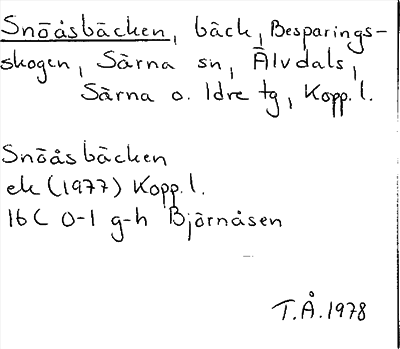 Snöåsbäcken, bäck, Besparings-
skogen, Särna sn, Älvdals,
Särna o. Idre tg, Kopp.l.
Snöåsbäcken
ek (1977) Kopp.l.
16C 0-1 g-h Björnåsen
T.Å.1978